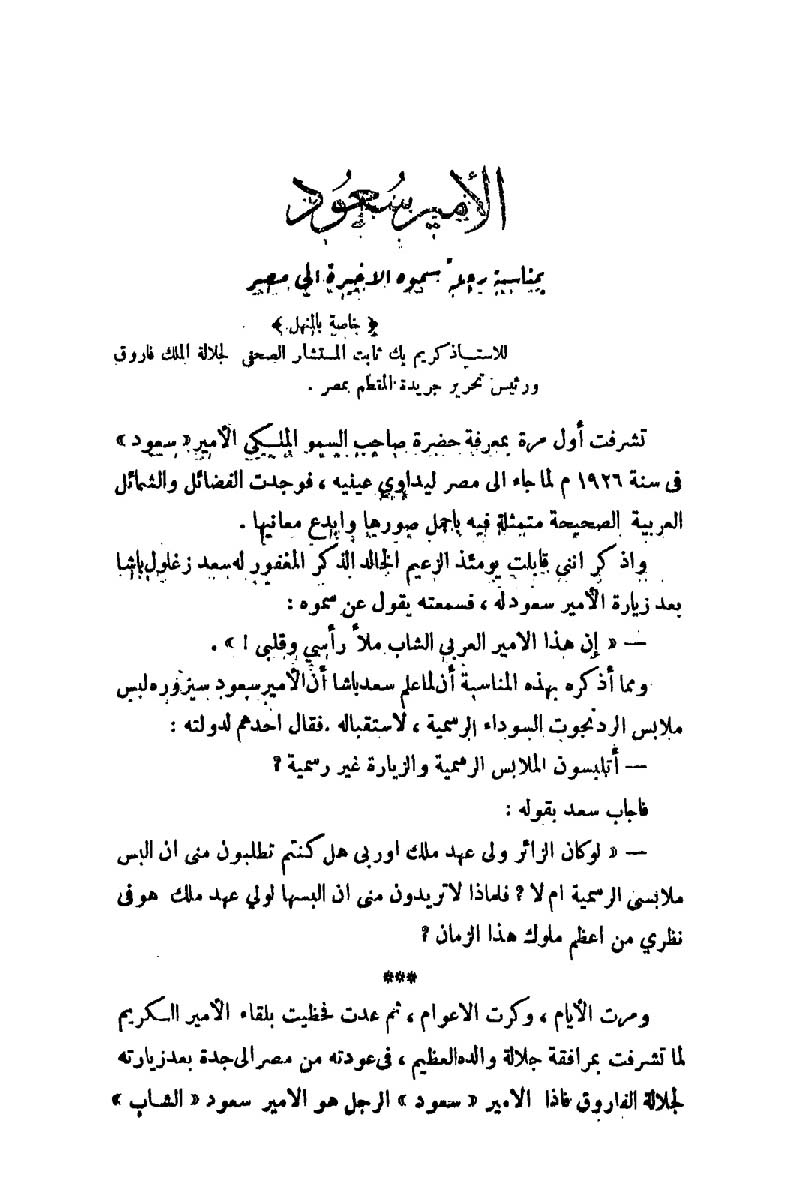 الأمير سُعُود
بمناسبة رحلة سموه الاخيرة الى مصر
﴿ خاصة بالمنهل ﴾
للاستـــاذ كريم بك ثابت المستشار الصحفي لجلالة الملك فاروق
ورئيس تحرير جريدة المقطم بمصر .
تشرفت أول مرة بمعرفة حضرة صاحب السمو الملـكي الأمير « سعود »
فى سنة ١٩٢٦ م لما جاء الى مصر ليداوي عينيه ، فوجدت الفضائل والشمائل
العربية الصحيحة متمثلة فيه باجمل صورها وابدع معانيها .
واذكر اننى قابلت يومئذ الزعيم الخالد الذكر المغفور له سعد زغلول باشا
بعد زيارة الأمير سعود له ، فسمعته يقول عن سموه :
— « إن هذا الامير العربي الشاب ملأ رأسي وقلبى ! » .
ومما أذكره بهذه المناسبة أن لما علم سعد باشا أن الأمير سعود سيزوره لبس
ملابس الردنجوت السوداء الرسمية ، لاستقباله . فقال احدهم لدولته :
— أتلبسون الملابس الرسمية والزيارة غير رسمية ؟
فاجاب سعد بقوله :
— « لوكان الزائر ولى عهد ملك اوربى هل كنتم تطلبون منى ان البس
ملابسى الرسمية ام لا ؟ فلماذا لا تريدون منى ان البسها لولي عهد ملك هو فى
نظري من اعظم ملوك هذا الزمان ؟
***
ومرت الأيام ، وكرت الاعوام ، ثم عدت فحظيت بلقاء الأمير الـكريم
لما تشرفت بمرافقة جلالة والده العظيم ، فى عودته من مصر الى جدة بعد زيارته
لجلالة الفاروق فاذا الامير « سعود » الرجل هو الامير سعود « الشاب »